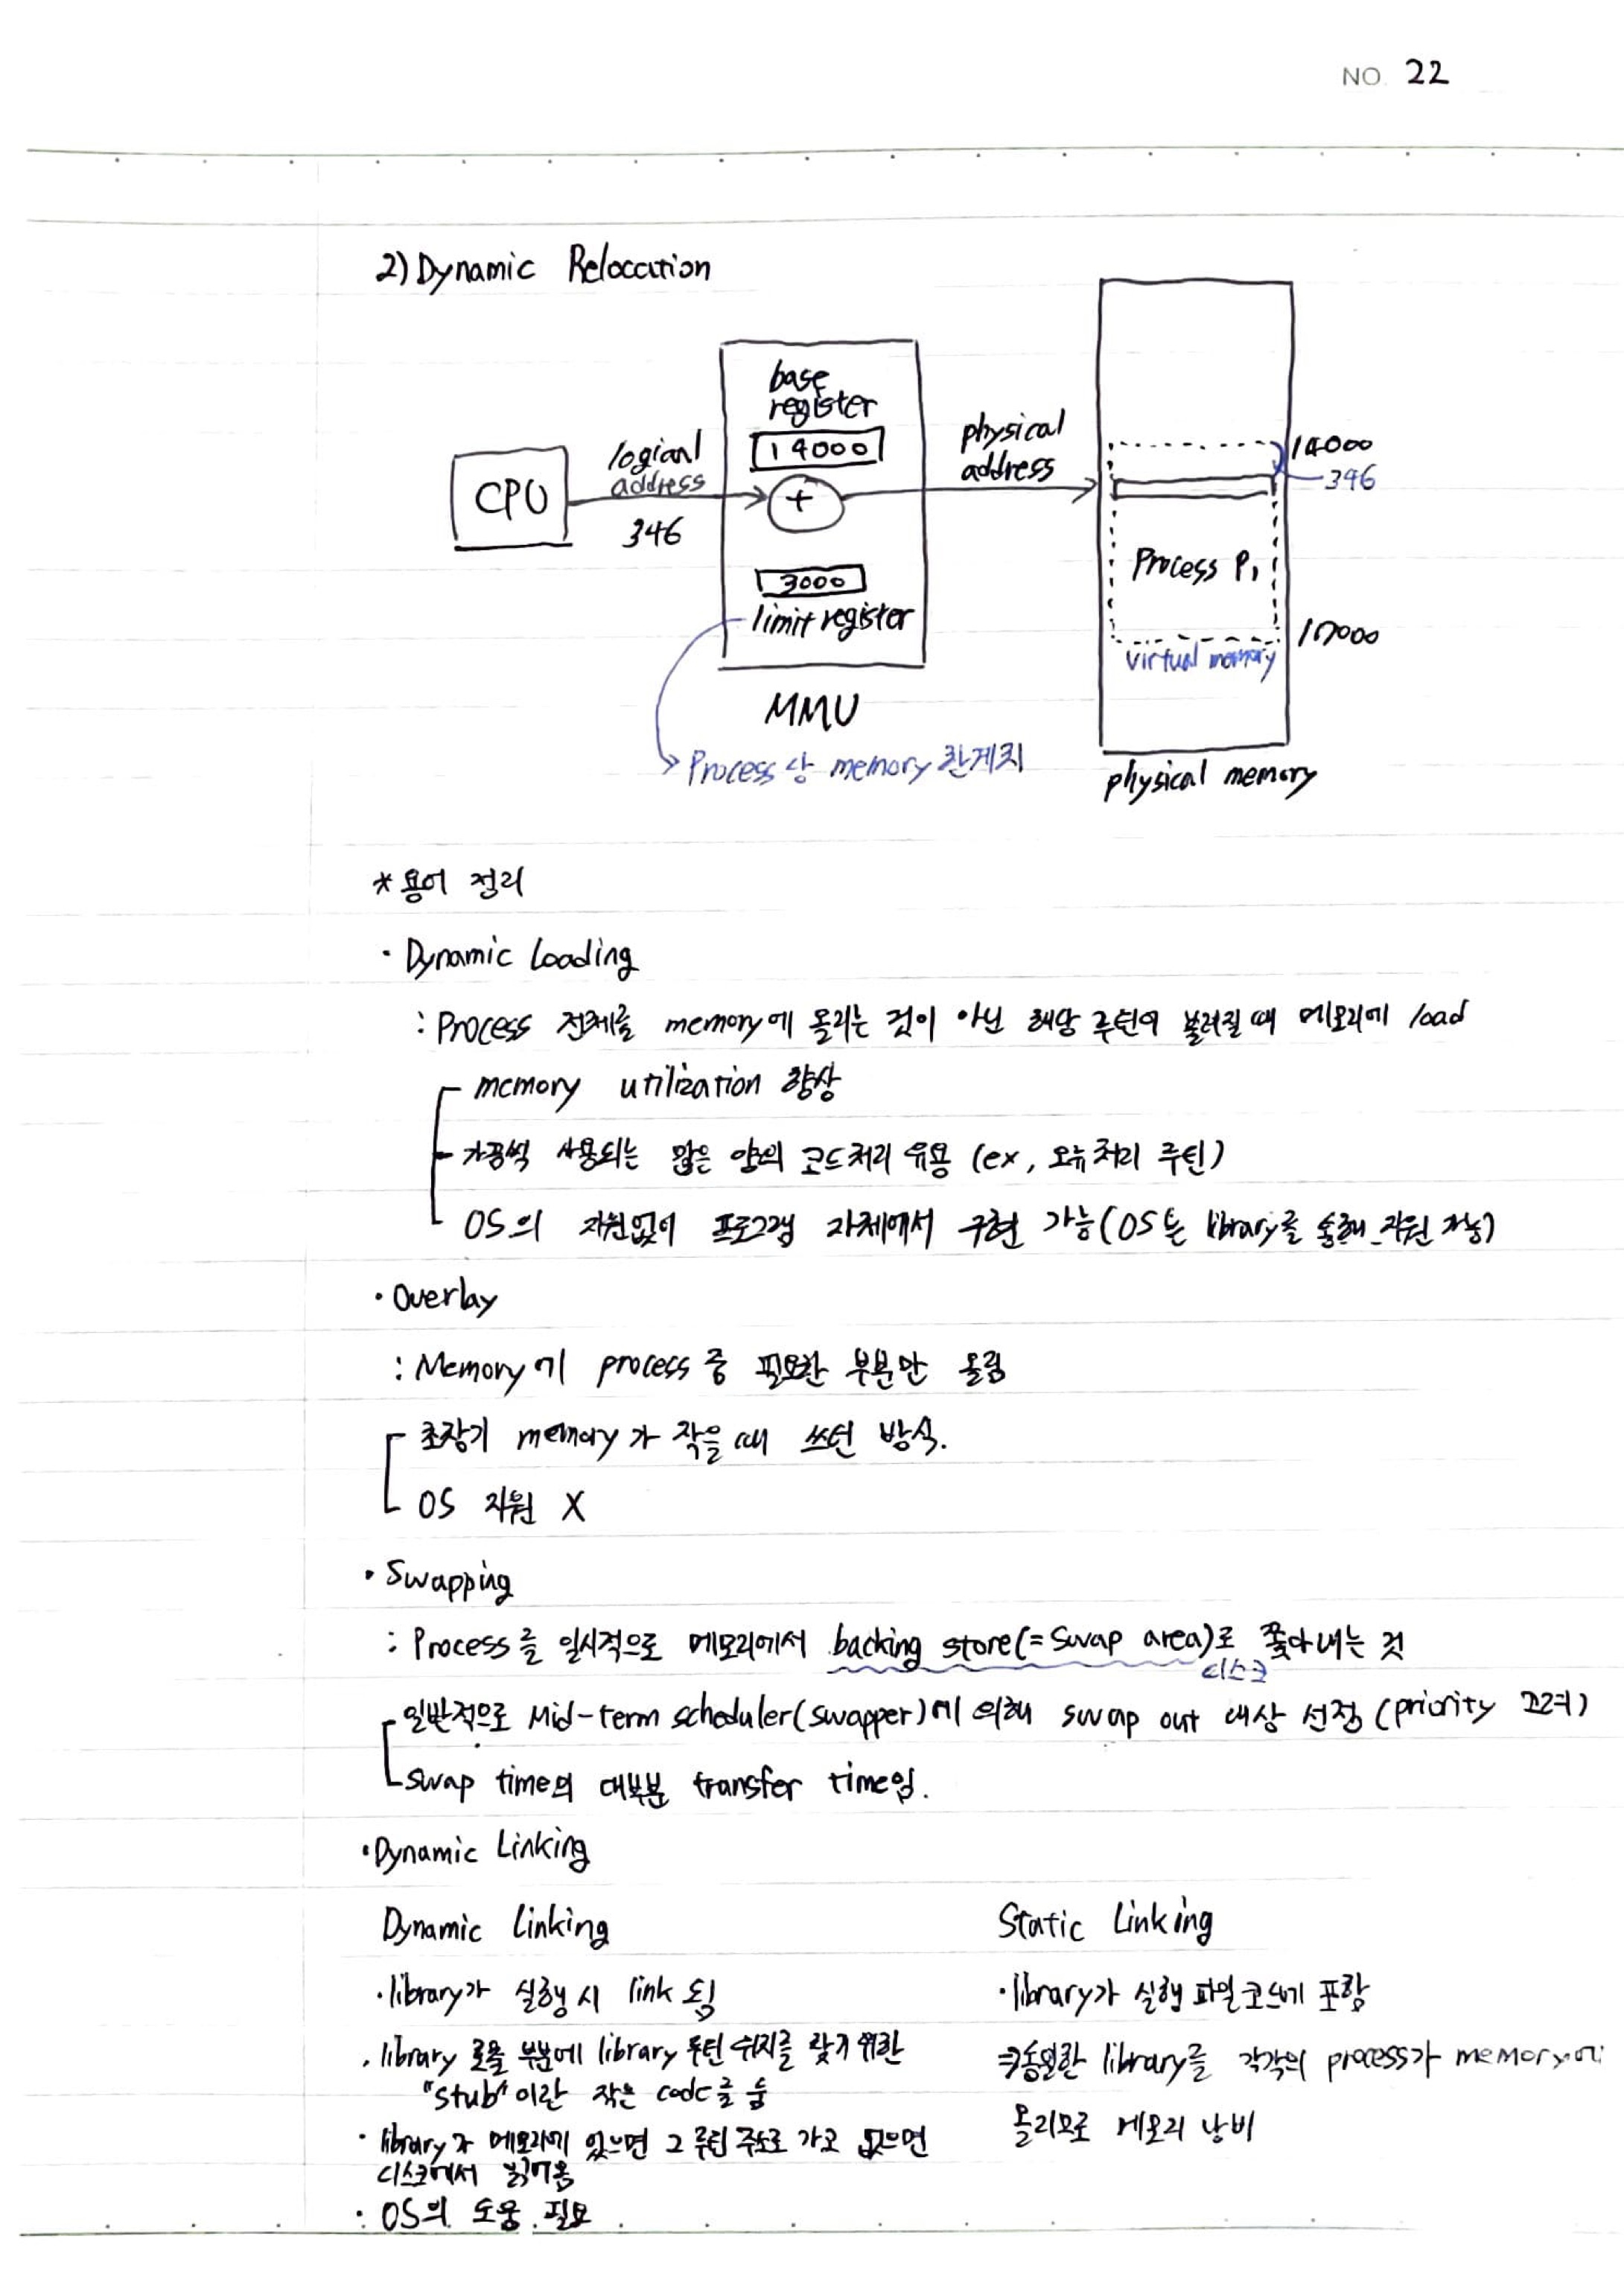 NO. 22
2) Dynamic Relocation
base
register
14000
CPU
logical
address
346
+
3000
limit register
MMU
Process 상 memory 한계치
physical
address
14000
346
Process P1
17000
virtual memory
physical memory
* 용어 정리
· Dynamic Loading
: Process 전체를 memory에 올리는 것이 아닌 해당 루틴이 불려질 때 메모리에 load
memory utilization 향상
가끔씩 사용되는 많은 양의 코드처리 유용 (ex, 오류처리 루틴)
OS의 지원없이 프로그램 자체에서 구현 가능(OS는 library를 통해 지원 가능)
· Overlay
: Memory에 process 중 필요한 부분만 올림
초창기 memory가 작을 때 쓰던 방식.
OS 지원 X
· Swapping
: Process를 일시적으로 메모리에서 backing store(=swap area)로 쫓아내는 것
디스크
일반적으로 Mid-term scheduler(swapper)에 의해 swap out 대상 선정 (priority 고려)
swap time의 대부분 transfer time임.
· Dynamic Linking
Dynamic Linking
· library가 실행 시 link 됨
· library 호출 부분에 library 루틴 위치를 찾기 위한
"stub"이란 작은 code를 둠
· library가 메모리에 있으면 그 루틴 주소로 가고 없으면
디스크에서 읽어옴
· OS의 도움 필요
Static Linking
· library가 실행 파일 코드에 포함
⇒동일한 library를 각각의 process가 memory에
올리므로 메모리 낭비